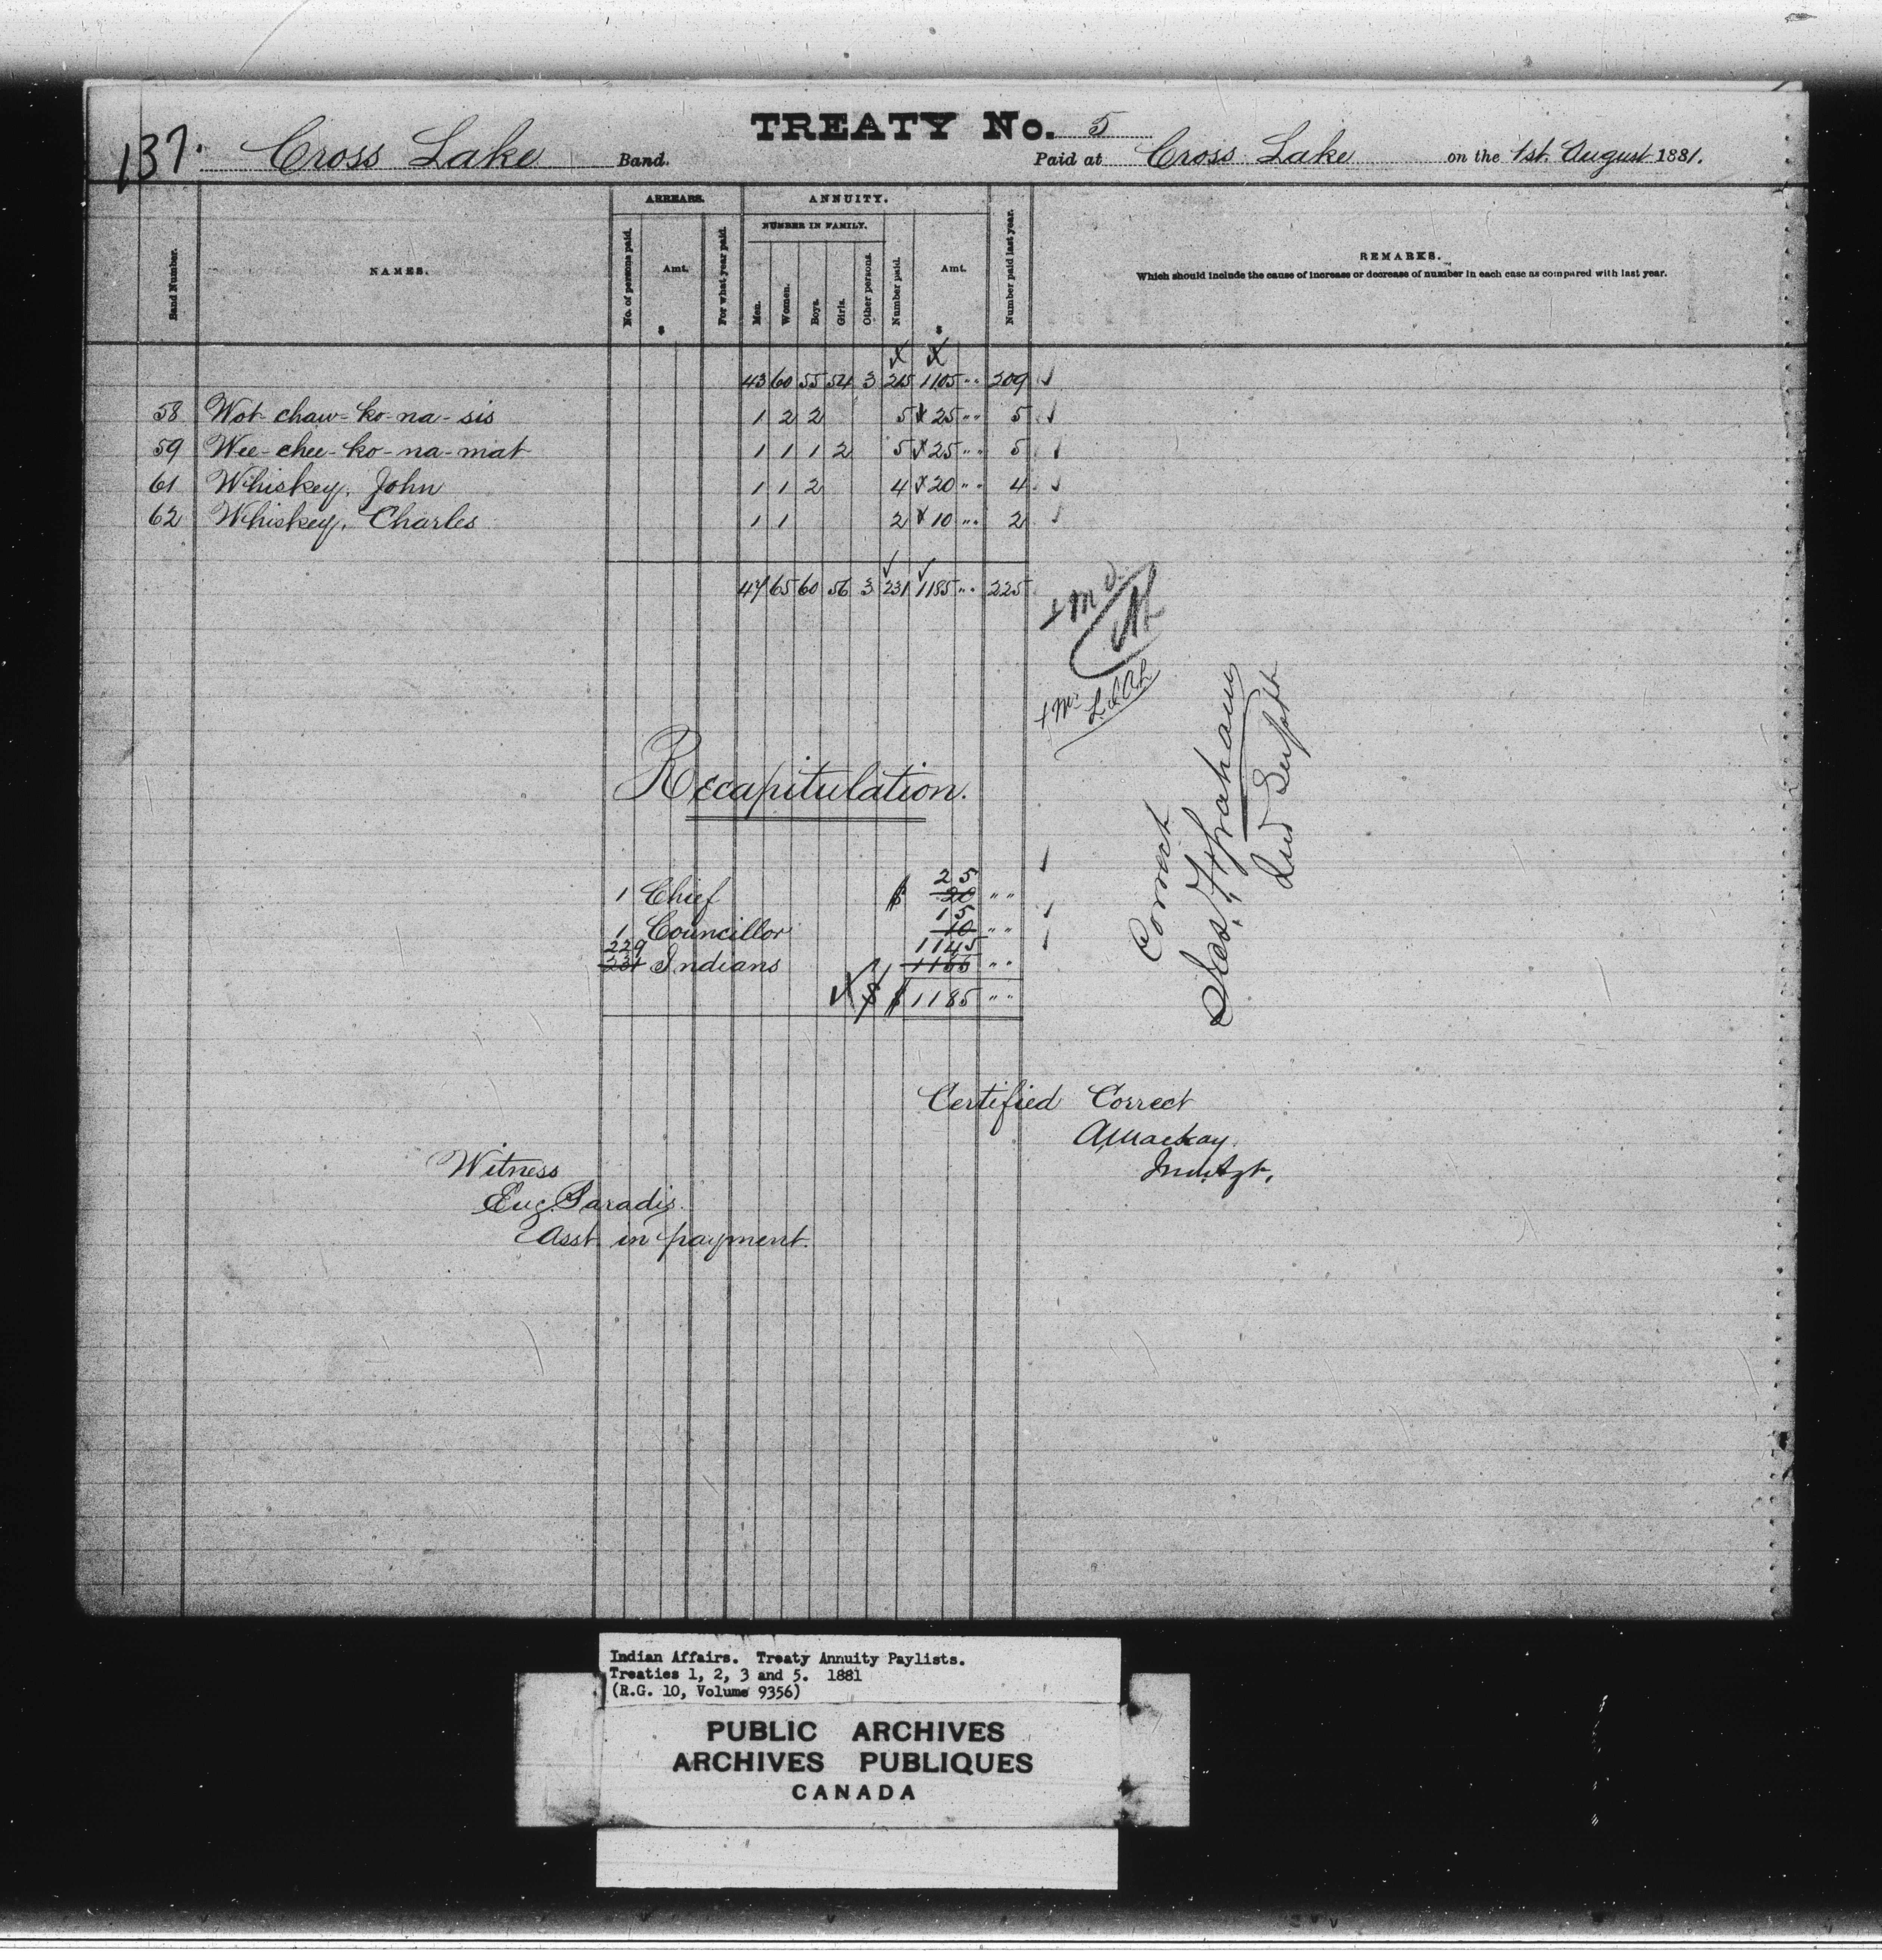 TREATY No. 5
137. Cross Lake Band. Paid at Cross Lake on the 1st. August 1881.
ARREARS. ANNUITY.
NUMBER IN FAMILY.
Band Number. NAMES. No. of persons paid. Amt. $ For what year paid. Men. Women. Boys. Girls. Other persons. Number paid. Amt. $ Number paid last year. REMARKS.
Which should include the cause of increase or decrease of number in each case as compared with last year.
43 60 55 54 3 215 1105 " 209 ✓
58 Wot-chaw-ko-na-sis 1 2 2 5 25 " 5 ✓
59 Wee-chee-ko-na-mat 1 1 1 2 5 25 " 5 ✓
61 Whiskey, John 1 1 2 4 20 " 4 ✓
62 Whiskey, Charles 1 1 2 10 " 2 ✓
47 65 60 56 3 231 1185 " 225
Recapitulation.
25
1 Chief $ 20 " "
15
1 Councillor 10 " "
229 1145
231 Indians 1155 " "
$ $ 1185 " "
Correct
Jas. F. Graham
Ind Supt
Certified Correct
A Mackay
Ind. Agt.
Witness
Eug. Paradis.
Asst. in payment.
Indian Affairs. Treaty Annuity Paylists.
Treaties 1, 2, 3 and 5. 1881
(R.G. 10, Volume 9356)
PUBLIC ARCHIVES
ARCHIVES PUBLIQUES
CANADA